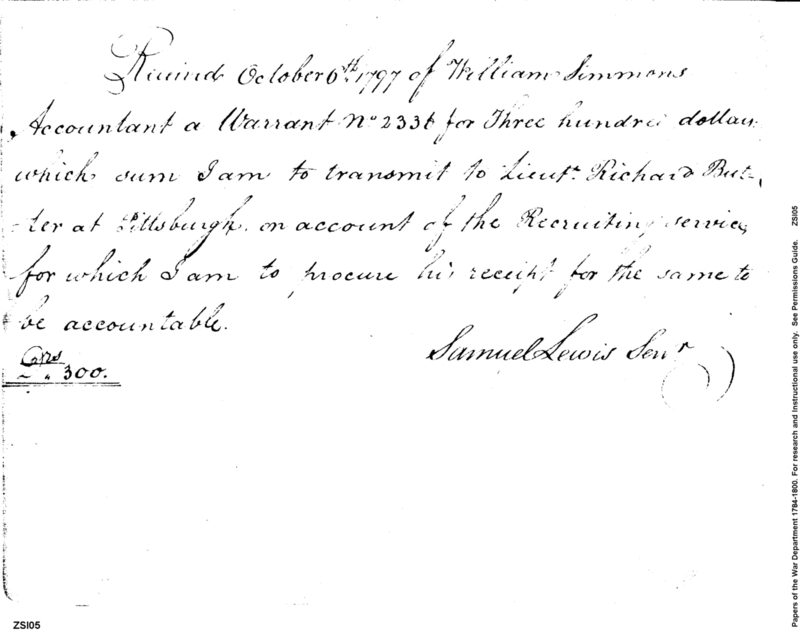 Received October 6th. 1797 of William Simmons
Accountant a Warrant No 2336 for Three hundred dollars
which sum I am to transmit to Lieut. Richard But-
-ler at Pittsburgh on account of the Recruiting service,
for which I am to procure his receipt for the same to
be accountable.
300.
Samuel Lewis Senr
Papers of the War Department 1784-1800. For research and instructional use only. See Permissions Guide. ZSI05
ZSI05